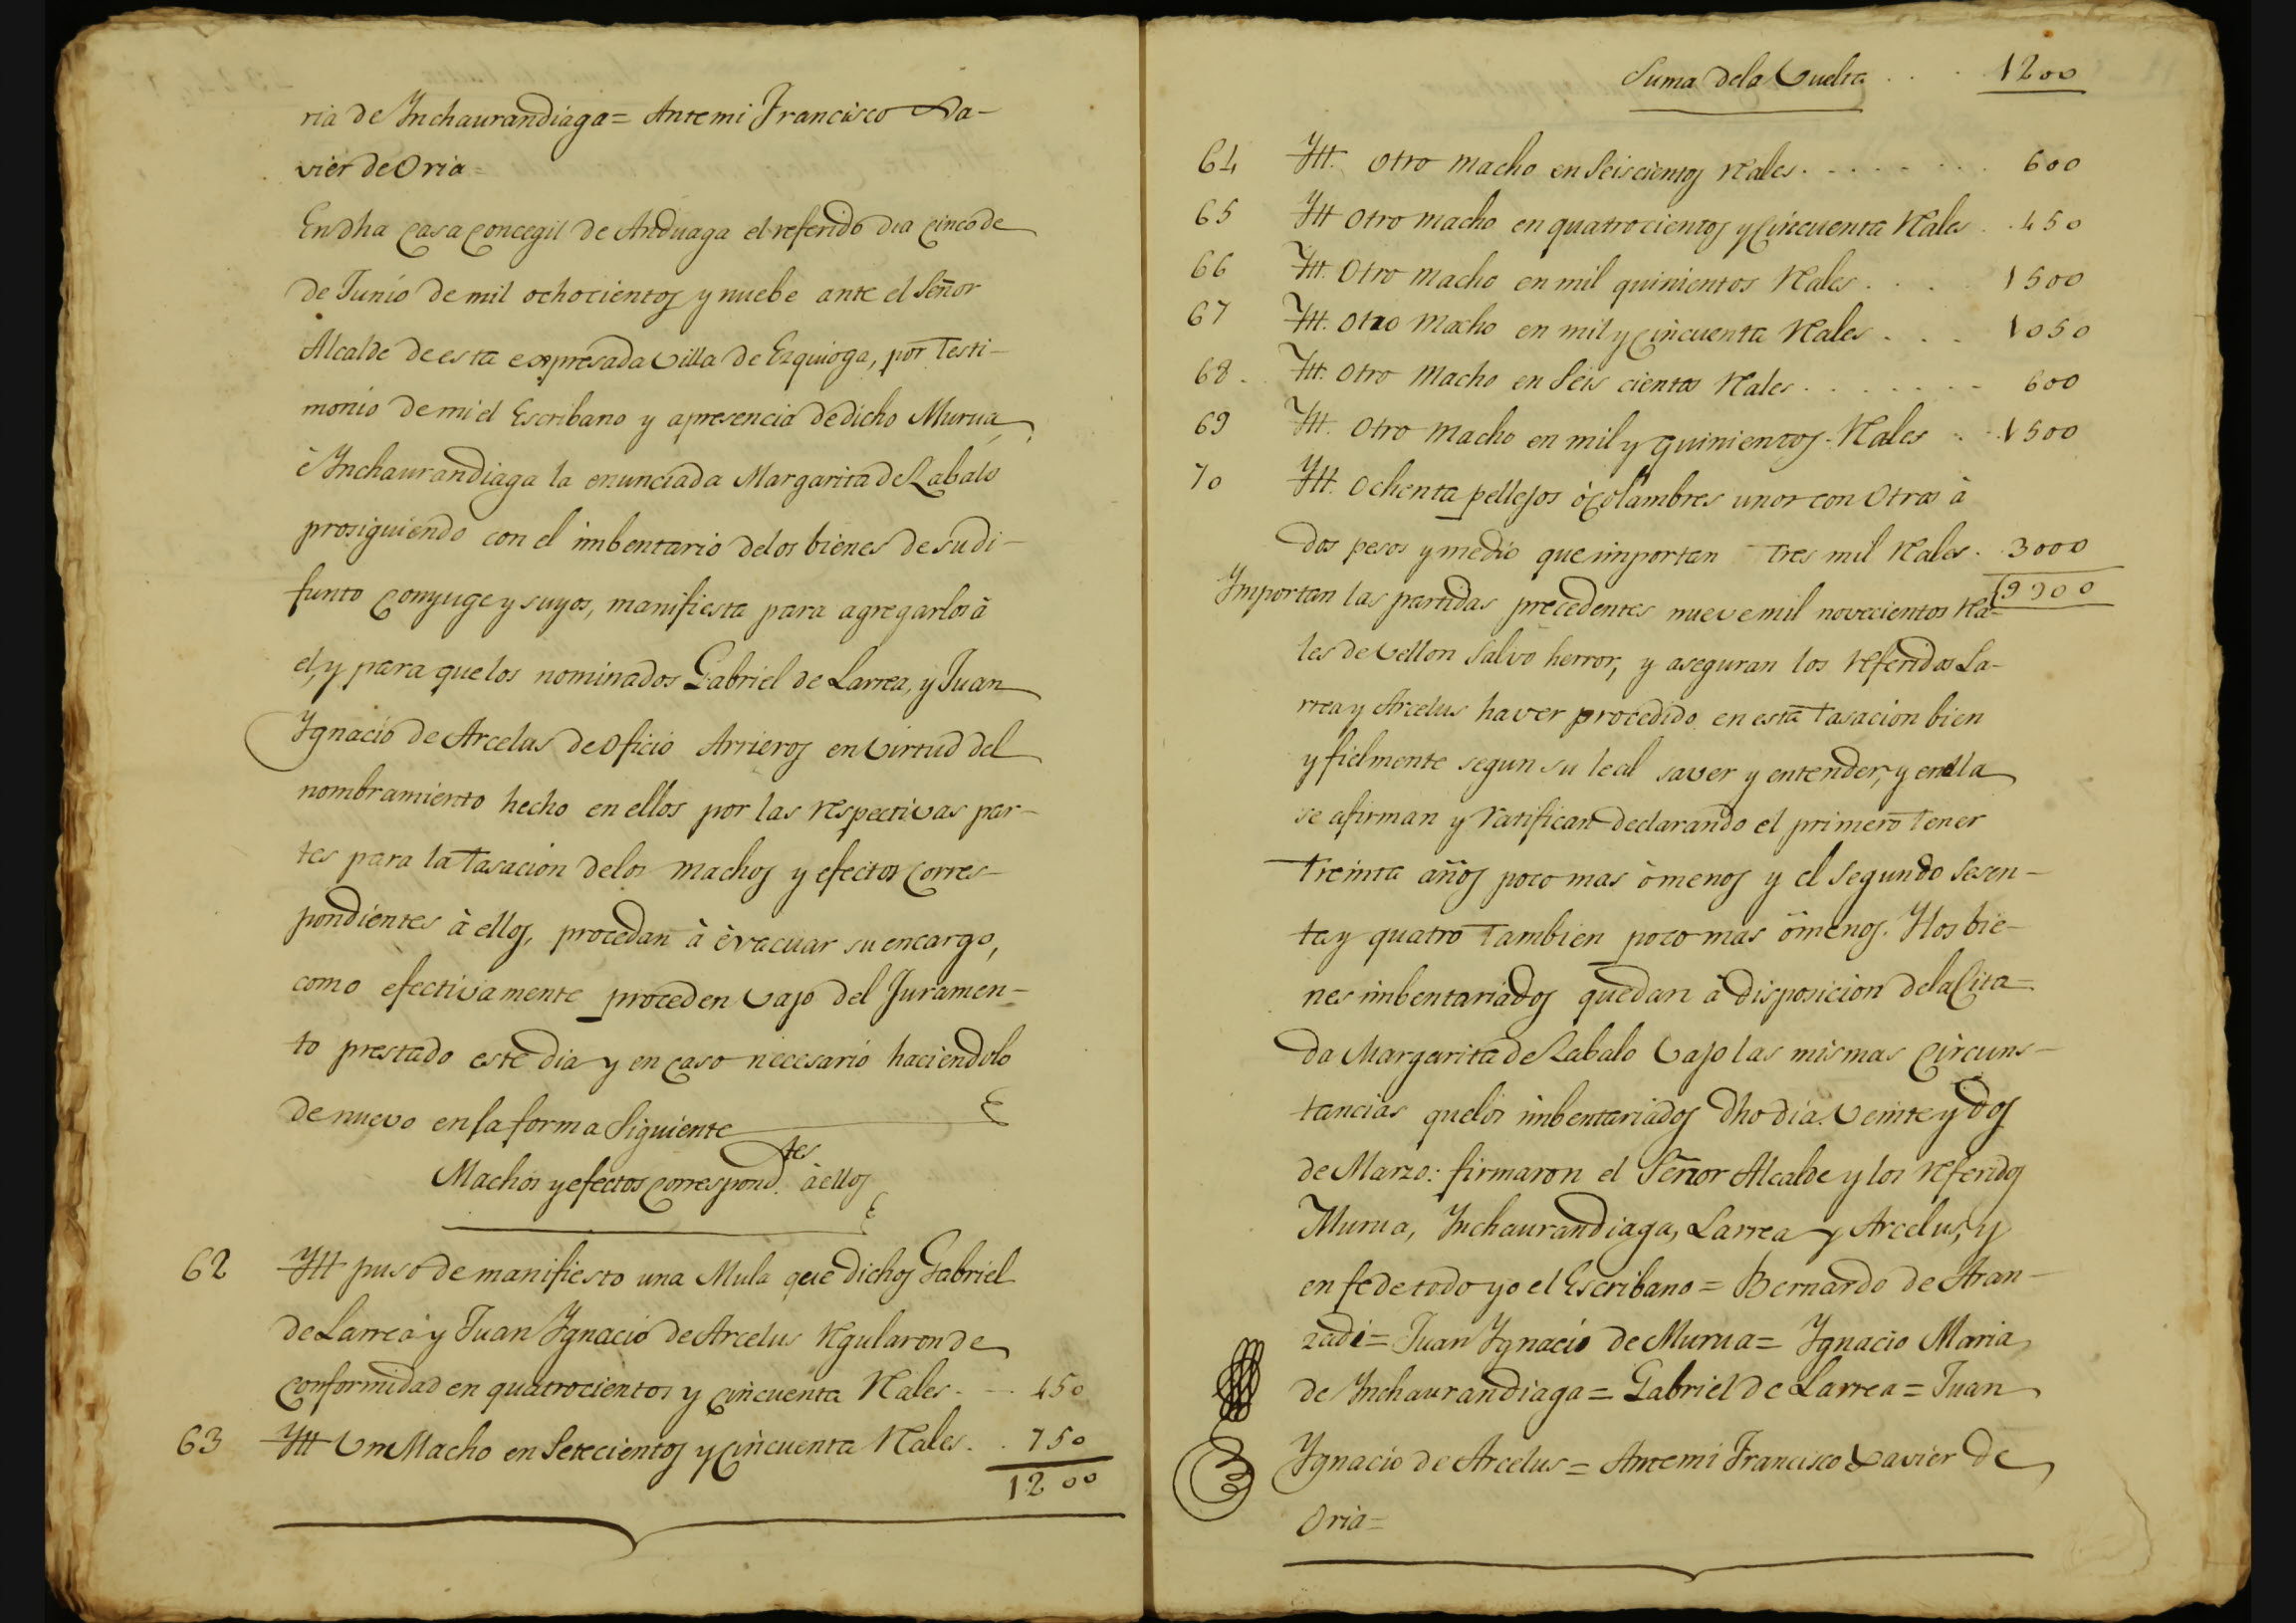 ria de Ynchaurandiaga = Ante mi Francisco Xa-
vier de Oria =
En dha Casa Concegil de Anduaga el referido dia cinco de
de Junio de mil ochocientos y nuebe ante el Señor
Alcalde de esta expresada Villa de Ezquioga, por Testi-
monio de mi el Escribano y a presencia de dicho Murua,
è Ynchaurandiaga la enunciada Margarita de Zabalo
prosiguiendo con el imbentario delos bienes de su di-
funto Conyuge y suyos, manifiesta para agregarlos à
el, y para que los nominados Gabriel de Larrea, y Juan
Ygnacio de Arcelus de Oficio Arrieros en Virtud del
nombramiento hecho en ellos por las respectivas par-
tes para la Tasacion delos machos y efectos Corres-
pondientes à ellos, procedan à èvacuar su encargo,
como efectivamente proceden Vajo del Juramen-
to prestado este dia y en Caso necesario haciendolo
de nuevo en la forma Siguiente
Machos y efectos Correspond.tes à ellos
62 Ytt puso de manifiesto una Mula que dichos Gabriel
de Larrea y Juan Ygnacio de Arcelus regularon de
Conformidad en quatrocientos y Cincuenta Rales. 450
63 Ytt Un Macho en Setecientos y Cincuenta Rales. 750
1200
Suma dela Vuelta . . . 1200
64 Ytt. Otro macho en Seiscientos Rales . . . . . . . . 600
65 Ytt Otro macho en quatrocientos y Cincuenta Rales . . 450
66 Ytt. Otro macho en mil quinientos Rales . . . . 1500
67 Ytt. Otro Macho en mil y Cincuenta Rales . . . 1050
68 . Ytt. Otro Macho en Seis cientos Rales . . . . . . . 600
69 Ytt. Otro Macho en mil y quinientos Rales . . . 1500
70 Ytt. Ochenta pellejos ò Colambres unos con Otros à
dos pesos y medio que importan Tres mil Rales . 3000
9900
Ymportan las partidas precedentes nueve mil novecientos Ra-
les de Vellon Salvo herror, y aseguran los referidos La-
rrea y Arcelus haver procedido en esta Tasacion bien
y fielmente segun su leal saver y entender, y en ella
se afirman y ratifican declarando el primero Tener
Treinta años poco mas òmenos y el Segundo Sesen-
ta y quatro Tambien poco mas òmenos. Y los bie-
nes imbentariados quedan à disposicion dela Cita-
da Margarita de Zabalo Vajo las mismas Circuns-
tancias que los imbentariados dho dia Veinte y dos
de Marzo: firmaron el Señor Alcalde y los referidos
Murua, Ynchaurandiaga, Larrea y Arcelus, y
en fe de todo yo el Escribano = Bernardo de Aran-
zadi = Juan Ygnacio de Murua = Ygnacio Maria
de Ynchaurandiaga = Gabriel de Larrea = Juan
Ygnacio de Arcelus = Ante mi Francisco Xavier de
Oria =